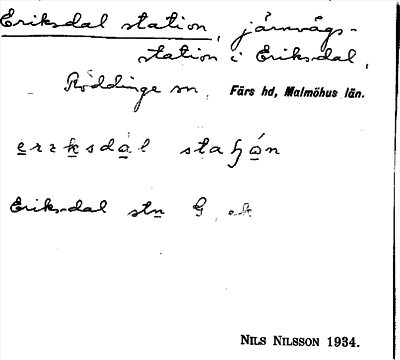 Eriksdal station, järnvägs-
station i Eriksdal,
Röddinge sn, Färs hd, Malmöhus län.
Eriksdal stn G
NILS NILSSON 1934.